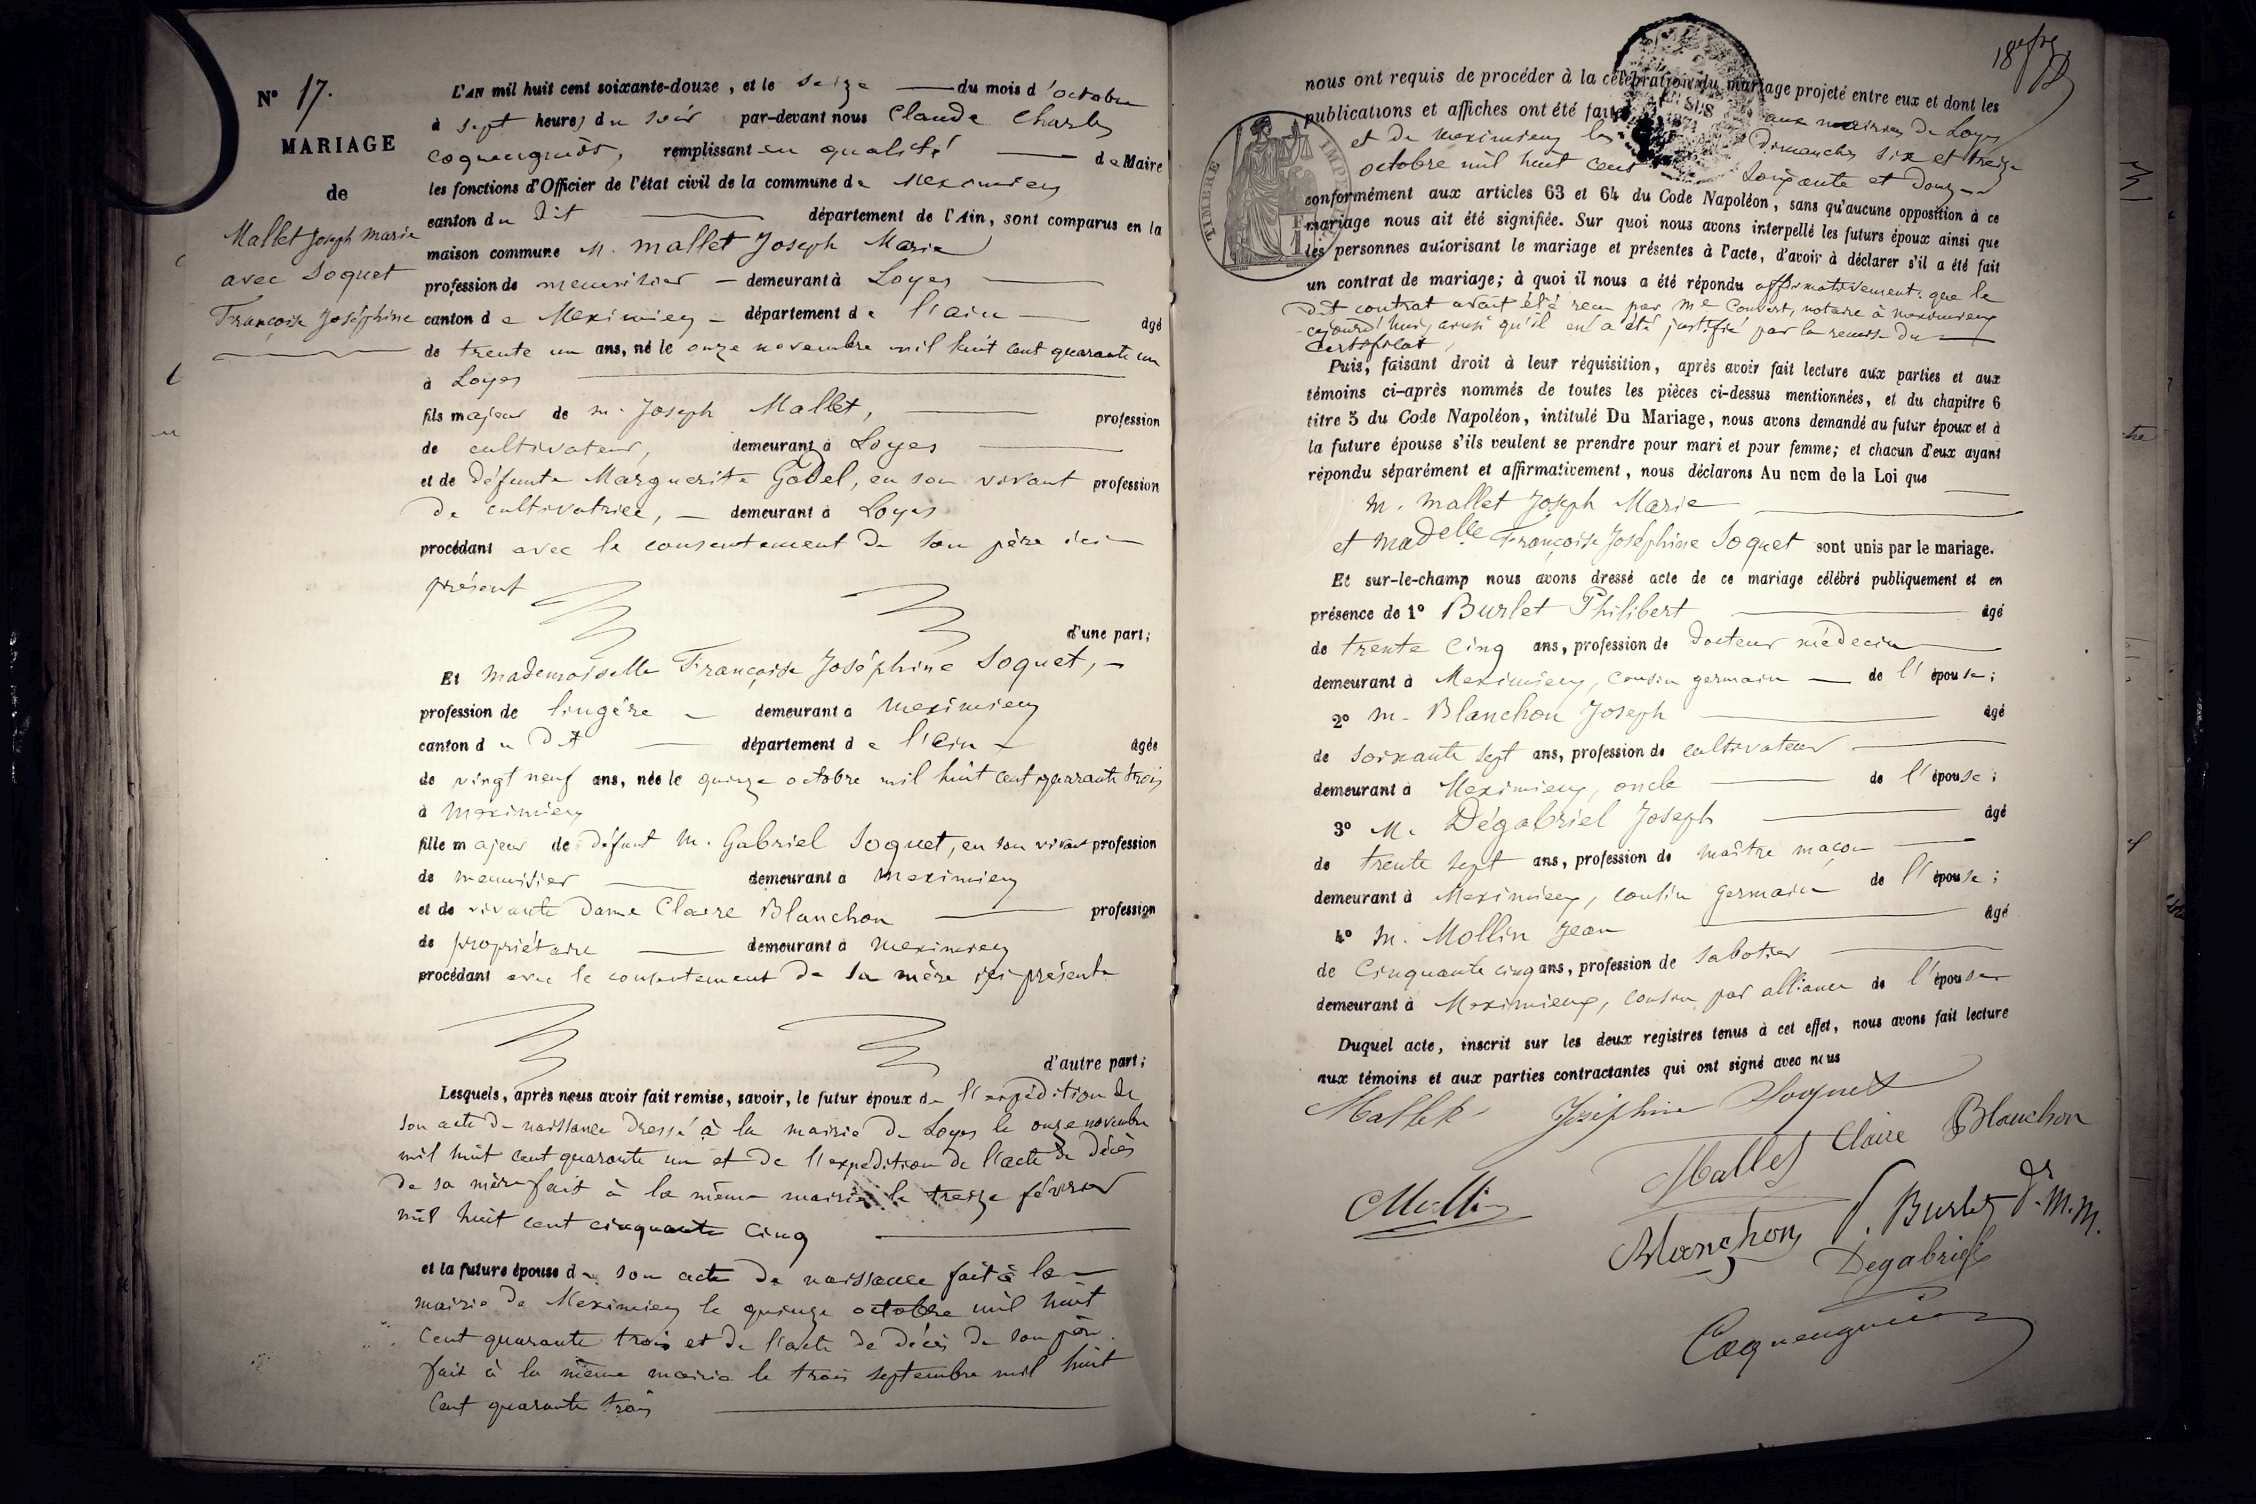 N° 17.
MARIAGE
de
Mallet Joseph Marie
avec Soquet
Françoise Joséphine
L'AN mil huit cent soixante-douze, et le seize du mois d'octobre
à sept heures du soir par-devant nous Claude Charles
Coquengniot, remplissant en qualité de Maire
les fonctions d'Officier de l'état civil de la commune de Meximieux
canton du dit département de l'Ain, sont comparus en la
maison commune M. Mallet Joseph Marie
profession de menuisier demeurant à Loyes
canton de Meximieux département de l'ain âgé
de trente un ans, né le onze novembre mil huit cent quarante un
à Loyes
fils majeur de m. Joseph Mallet, profession
de cultivateur, demeurant à Loyes
et de défunte Marguerite Godel, en son vivant profession
de cultivatrice, demeurant à Loyes
procédant avec le consentement de son père ici
présent
d'une part;
Et Mademoiselle Françoise Joséphine Soquet,
profession de lingère demeurant à Meximieux
canton du dit département de l'ain âgée
de vingt neuf ans, née le quinze octobre mil huit cent quarante trois
à Meximieux
fille majeur de défunt M. Gabriel Soquet, en son vivant profession
de menuisier demeurant à Meximieux
et de vivante Dame Claire Blanchon profession
de propriétaire demeurant à Meximieux
procédant avec le consentement de sa mère ici présente
d'autre part;
Lesquels, après nous avoir fait remise, savoir, le futur époux de l'expédition de
son acte de naissance dressé à la mairie de Loyes le onze novembre
mil huit cent quarante un et de l'expédition de l'acte de décès
de sa mère fait à la même mairie le treize février
mil huit cent cinquante cinq
et la future épouse de son acte de naissance fait à la
mairie de Meximieux le quinze octobre mil huit
cent quarante trois et de l'acte de décès de son père
fait à la même mairie le trois septembre mil huit
cent quarante trois
nous ont requis de procéder à la célébration du mariage projeté entre eux et dont les
publications et affiches ont été faites aux mairies de Loyes
et de Meximieux les dimanches six et treize
octobre mil huit cent soixante et douze
conformément aux articles 63 et 64 du Code Napoléon, sans qu'aucune opposition à ce
mariage nous ait été signifiée. Sur quoi nous avons interpellé les futurs époux ainsi que
les personnes autorisant le mariage et présentes à l'acte, d'avoir à déclarer s'il a été fait
un contrat de mariage; à quoi il nous a été répondu affirmativement que le
dit contrat avait été reçu par Me Convert, notaire à Meximieux
cejourd'hui, ainsi qu'il en a été justifié par la remise du
Certificat,
Puis, faisant droit à leur réquisition, après avoir fait lecture aux parties et aux
témoins ci-après nommés de toutes les pièces ci-dessus mentionnées, et du chapitre 6
titre 5 du Code Napoléon, intitulé Du Mariage, nous avons demandé au futur époux et à
la future épouse s'ils veulent se prendre pour mari et pour femme; et chacun d'eux ayant
répondu séparément et affirmativement, nous déclarons Au nom de la Loi que
M. Mallet Joseph Marie
et Madelle Françoise Joséphine Soquet sont unis par le mariage.
Et sur-le-champ nous avons dressé acte de ce mariage célébré publiquement et en
présence de 1° Burlet Philibert âgé
de trente cinq ans, profession de docteur médecin
demeurant à Meximieux, cousin germain de l'épouse;
2° M. Blanchon Joseph âgé
de soixante sept ans, profession de cultivateur
demeurant à Meximieux, oncle de l'épouse;
3° M. Dégabriel Joseph âgé
de trente sept ans, profession de maître maçon
demeurant à Meximieux, cousin germain de l'épouse;
4° M. Mollin Jean âgé
de Cinquante cinq ans, profession de sabotier
demeurant à Meximieux, cousin par alliance de l'épouse
Duquel acte, inscrit sur les deux registres tenus à cet effet, nous avons fait lecture
aux témoins et aux parties contractantes qui ont signé avec nous
Mallet Joséphine Soquet
Mallet Claire Blanchon
Mollin
Blanchon P. Burlet dr. M.M.
Degabriel
Coquengniot
TIMBRE IMP